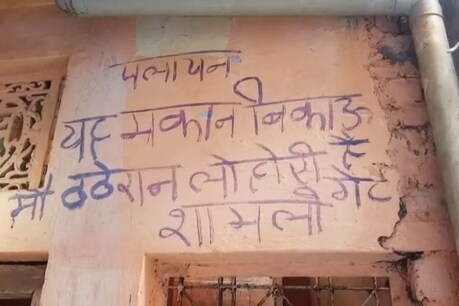 पलायन
यह मकान बिकाऊ है
मौ ठठेरान लोहोरी गेट
शामली